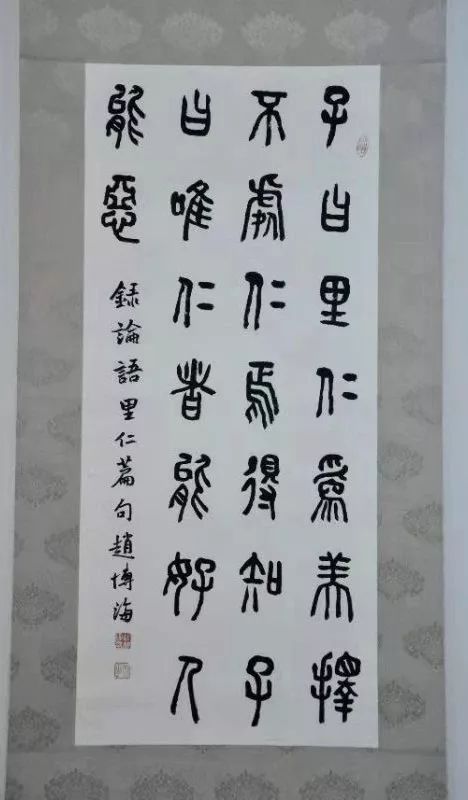 子曰里仁爲美擇
不處仁焉得知子
曰唯仁者能好人
能惡
録論語里仁篇句趙博海